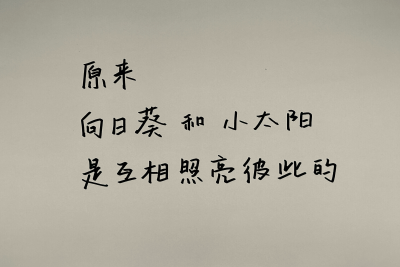 原来
向日葵和小太阳
是互相照亮彼此的